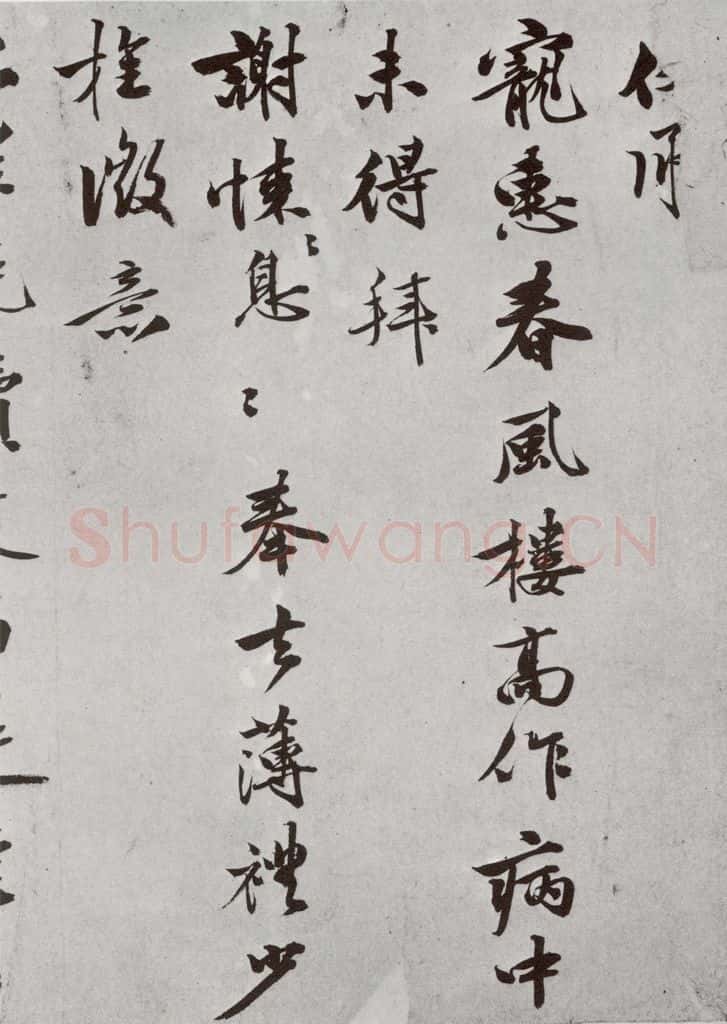 仁
寵惠春風樓高作病中
未得拜
謝悚〻息〻奉去薄禮少
旌微意
Shufawang.CN